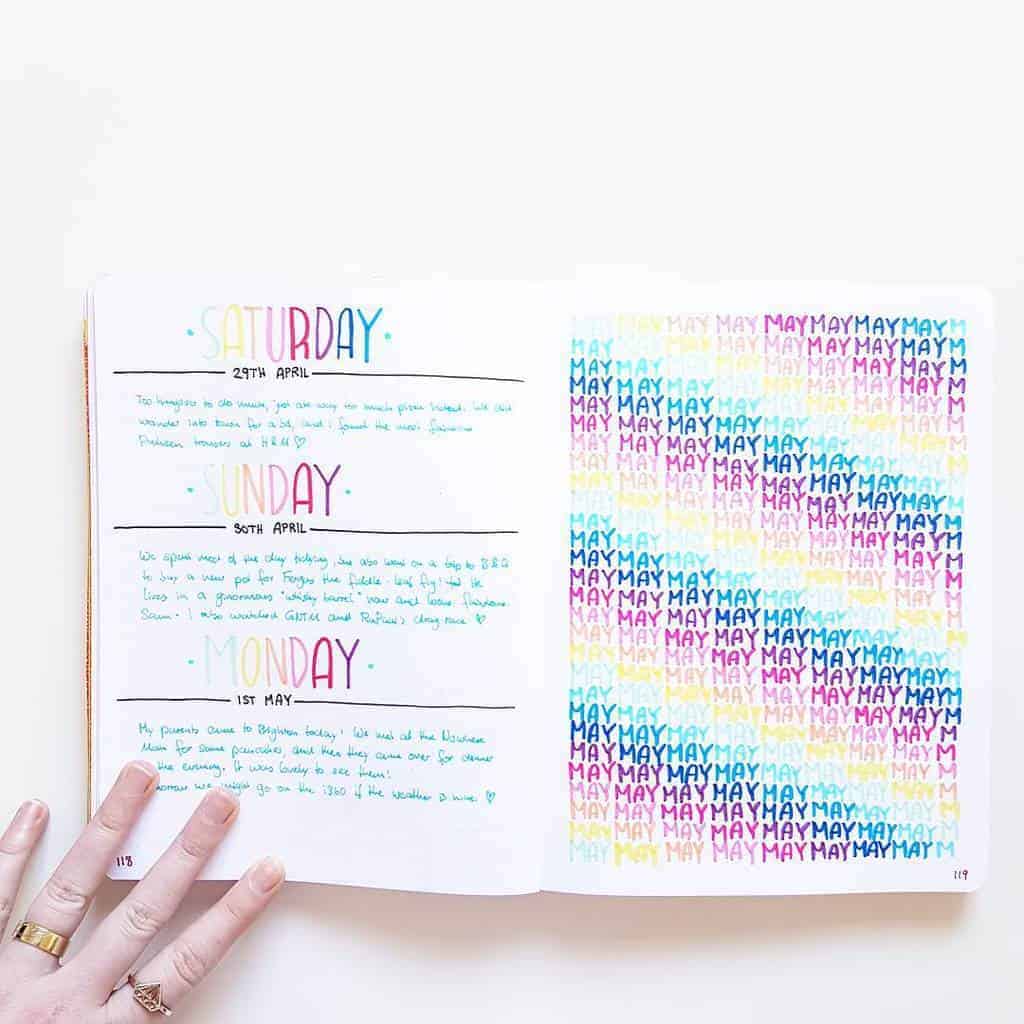 SATURDAY
29TH APRIL
Too hungover to do much, just ate way too much pizza instead. We did
wander into town for a bit, and I found the most fabulous
trousers at H&M ♡
SUNDAY
30TH APRIL
We spent most of the day tidying, but also went on a trip to B&Q
to buy a new pot for Fergus the fiddle leaf fig! He
lives in a ginormous "whisky barrel" now and looks fabulous.
I also watched GNTM and RuPaul's drag race ♡
MONDAY
1ST MAY
My parents came to Brighton today! We met at the Nowhere
Man for some pancakes, and then they came over for dinner
the evening. It was lovely to see them!
we might go on the i360 if the weather is nice. ♡
118
MAY MAY MAY MAY MAY MAY MAY MAY M
MAY MAY MAY MAY MAY MAY MAY MAY M
MAY MAY MAY MAY MAY MAY MAY MAY M
MAY MAY MAY MAY MAY MAY MAY MAY M
MAY MAY MAY MAY MAY MAY MAY MAY M
MAY MAY MAY MAY MAY MAY MAY MAY M
MAY MAY MAY MAY MAY MAY MAY MAY M
MAY MAY MAY MAY MAY MAY MAY MAY M
MAY MAY MAY MAY MAY MAY MAY MAY M
MAY MAY MAY MAY MAY MAY MAY MAY M
MAY MAY MAY MAY MAY MAY MAY MAY M
MAY MAY MAY MAY MAY MAY MAY MAY M
MAY MAY MAY MAY MAY MAY MAY MAY M
MAY MAY MAY MAY MAY MAY MAY MAY M
MAY MAY MAY MAY MAY MAY MAY MAY M
MAY MAY MAY MAY MAY MAY MAY MAY M
MAY MAY MAY MAY MAY MAY MAY MAY M
MAY MAY MAY MAY MAY MAY MAY MAY M
MAY MAY MAY MAY MAY MAY MAY MAY M
MAY MAY MAY MAY MAY MAY MAY MAY M
MAY MAY MAY MAY MAY MAY MAY MAY M
MAY MAY MAY MAY MAY MAY MAY MAY M
MAY MAY MAY MAY MAY MAY MAY MAY M
MAY MAY MAY MAY MAY MAY MAY MAY M
MAY MAY MAY MAY MAY MAY MAY MAY M
MAY MAY MAY MAY MAY MAY MAY MAY M
MAY MAY MAY MAY MAY MAY MAY MAY M
MAY MAY MAY MAY MAY MAY MAY MAY M
119